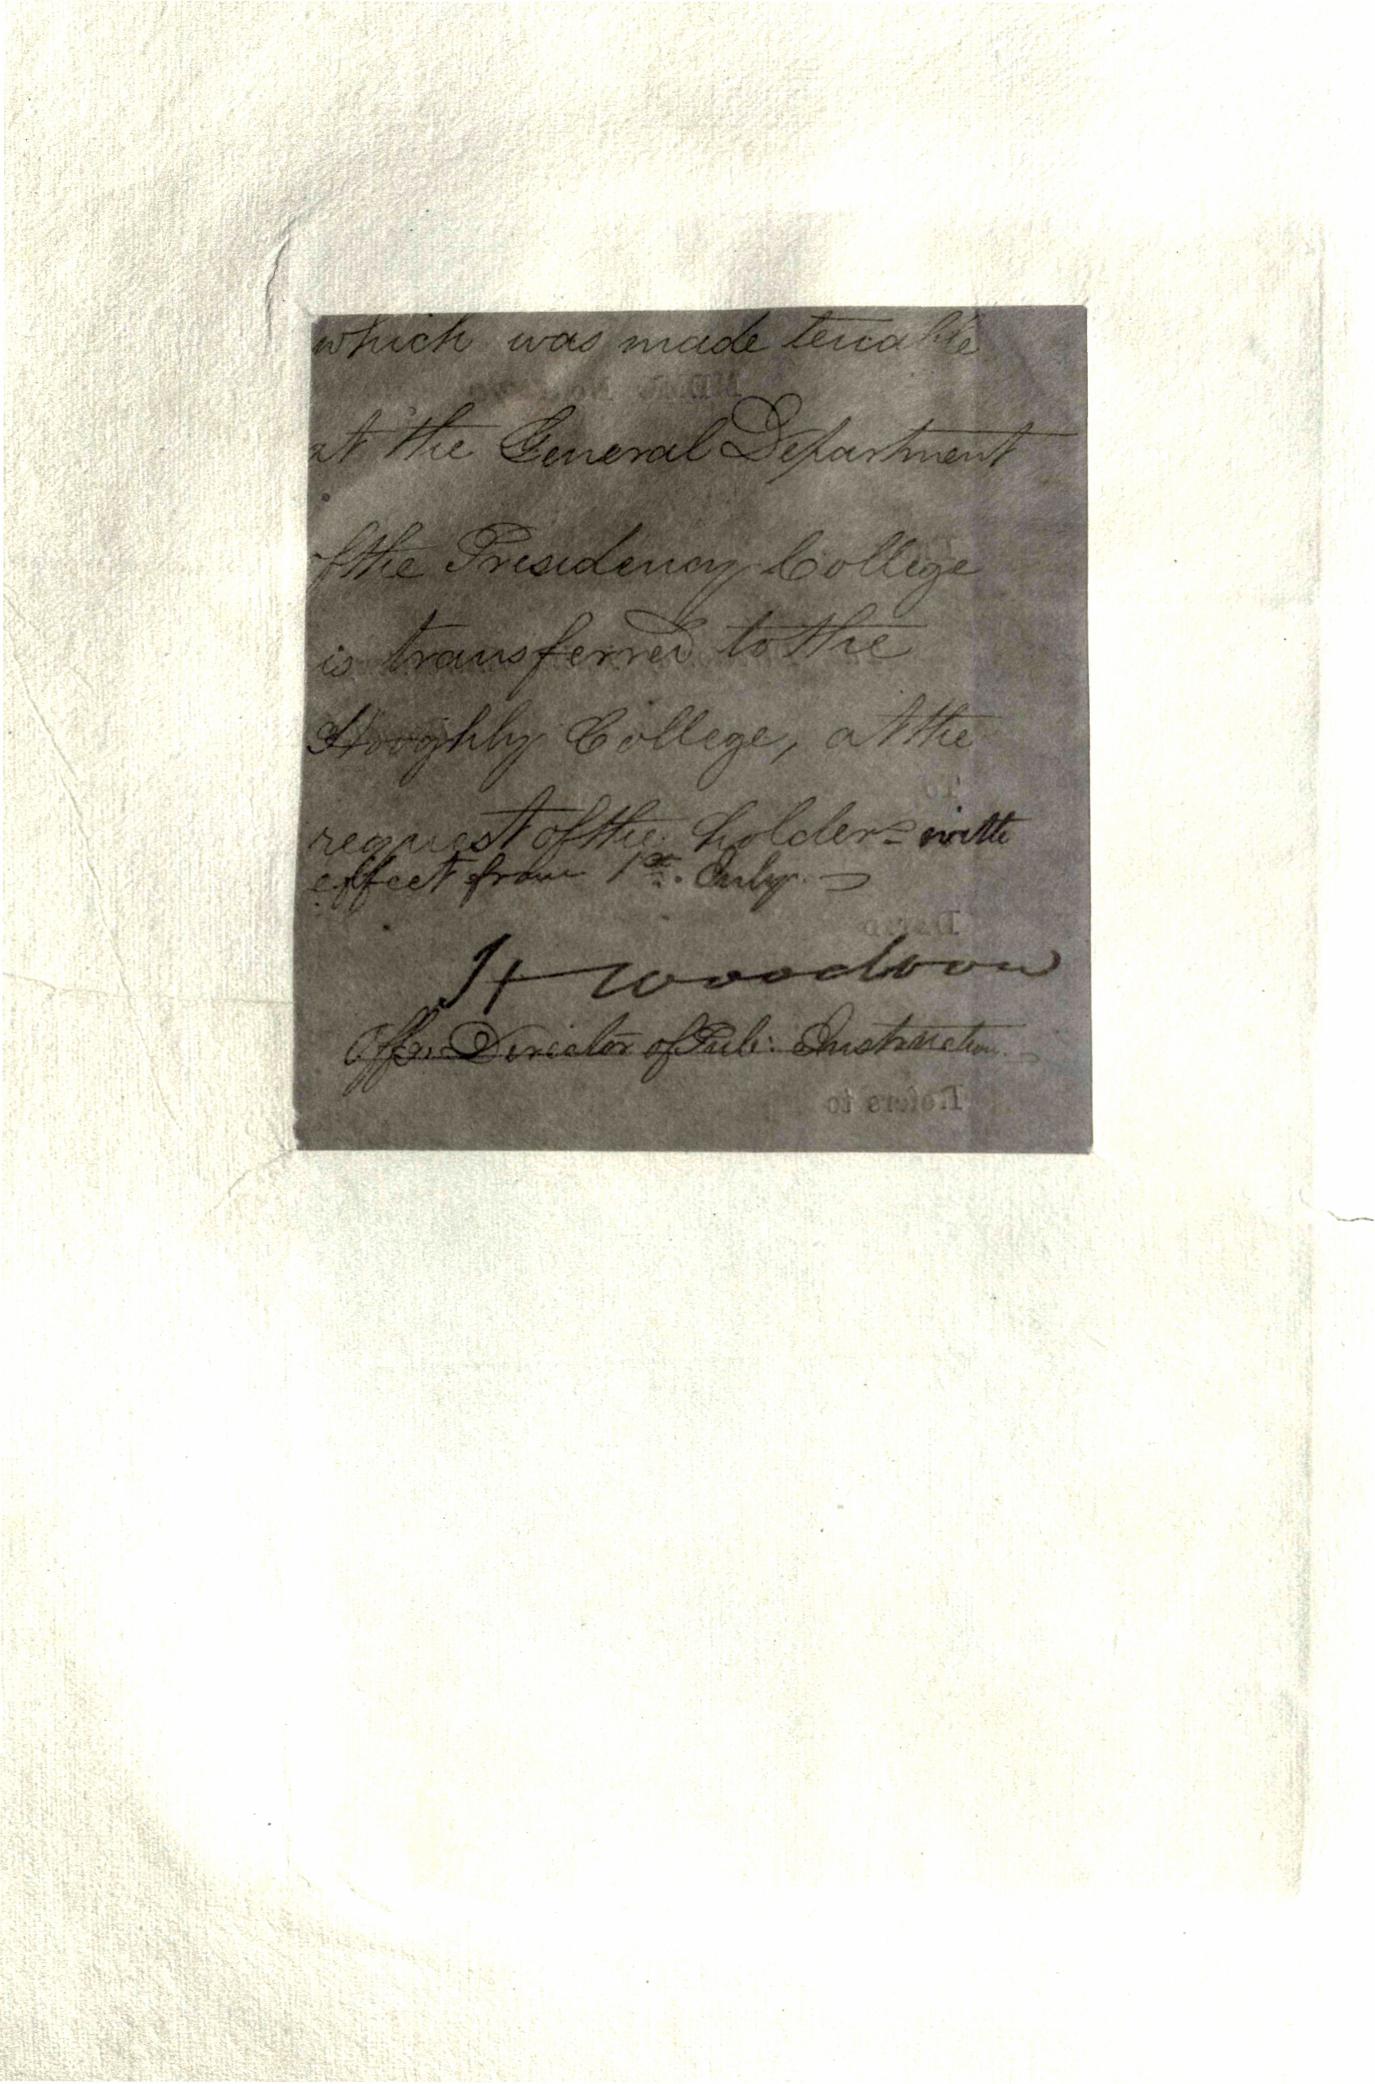 which was made tenable
at the General Department
of the Presidency College
is transferred to the
Hooghly College, at the
request of the holder = with
effect from 1st. July.
H Woodrow
Offg. Director of Pub: Instruction.
Refers to